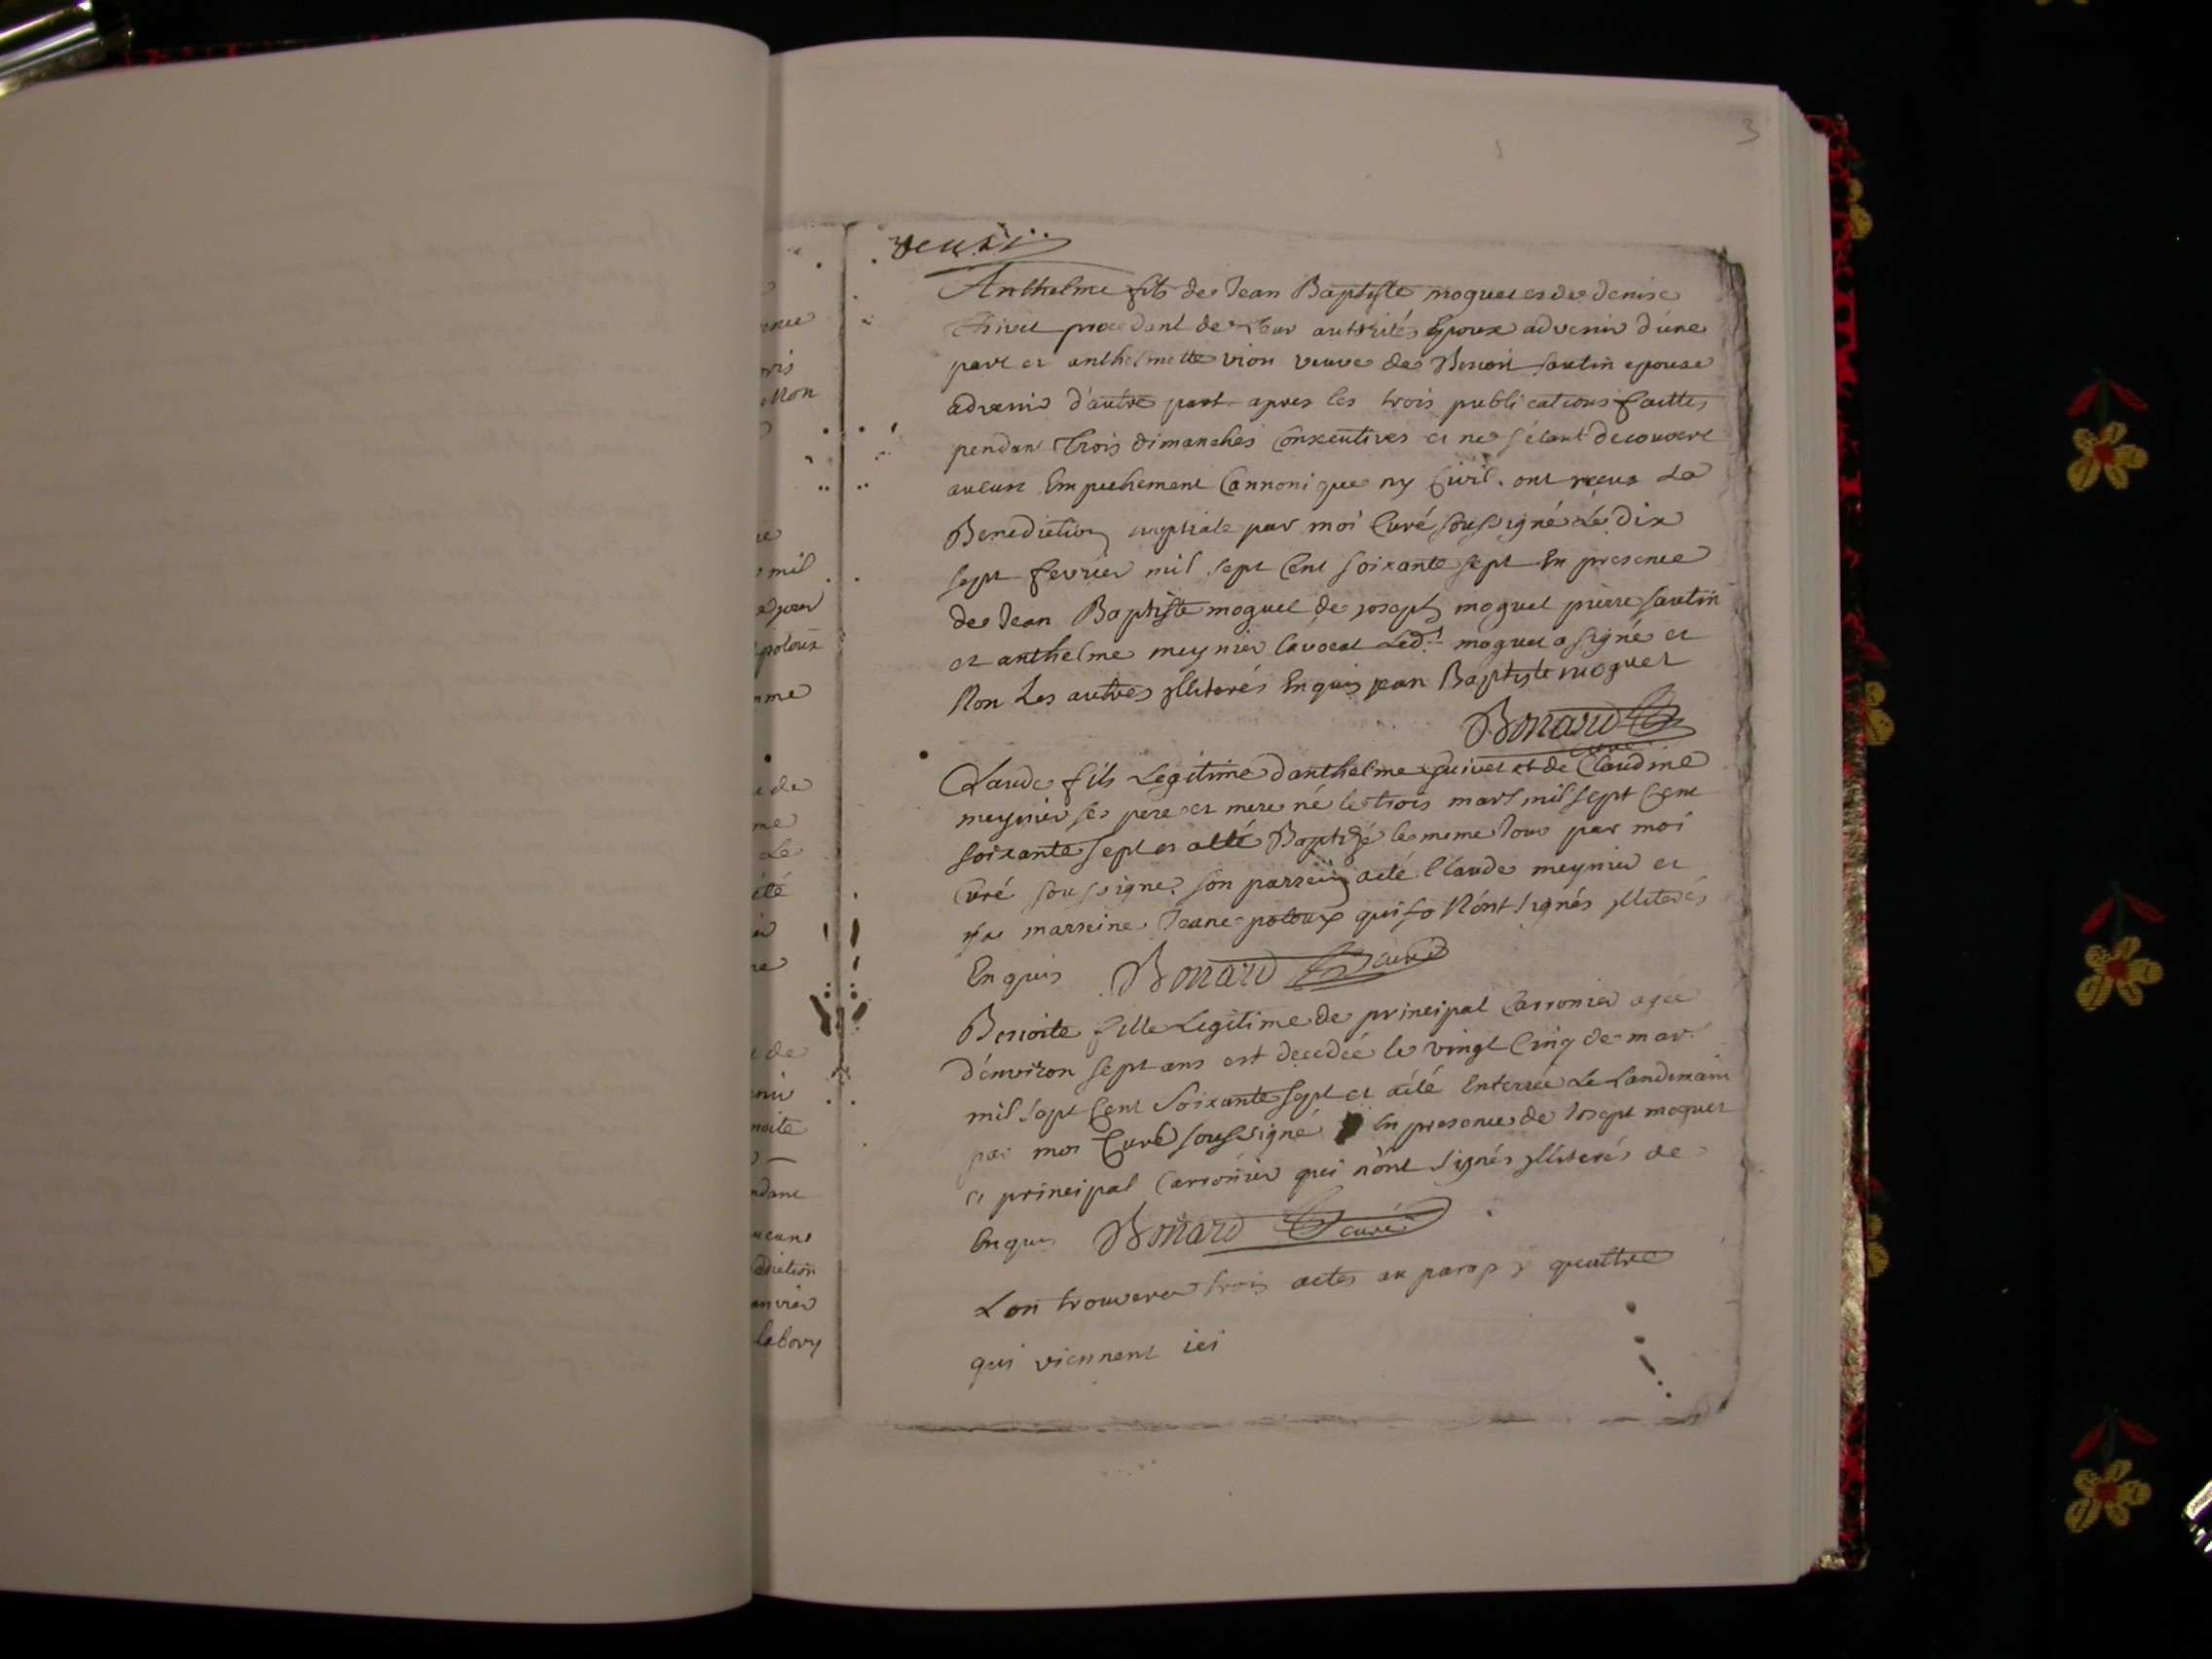 3
deuxi
Anthelme fils de Jean Baptiste moguet et de denise
procedant de leur autorités Epoux advenir d'une
part et anthelmette vion veuve de Benoit sautin epouse
advenir d'autre part apres les trois publications faittes
pendan trois dimanches Consecutives et ne s'étant decouvert
aucun Empechement Cannonique ny Civil. ont reçus La
Benediction nuptiale par moi Curé soussigné Le dix
sept fevrier mil sept Cent soixante sept En presence
de Jean Baptiste moguet de joseph moguet pierre sautin
et anthelme meynier lavocat Led.t moguet a signé et
Non Les autres jlliterés Enquis jean Baptiste moguet
Bonard
curé
Claude fils Legitime d'anthelme et de Claudine
meynier ses pere et mere né le trois mars mil sept Cent
soixante sept et a été Baptizé le meme Jour par moi
Curé soussigné. son parrein a eté Claude meynier et
sa marreine Jeane poloux qui Nont signés jlliterés
Enquis Bonard curé
Benoite fille Legitime de principal Carronier agee
d'environ sept ans est decedée le vingt Cinq de mars
mil sept Cent Soixante sept et a été Enterrée Le Landemain
par moi Curé soussigné En presence de Josept moguet
et principal Carronier qui n'ont signés jlliterés de
Enquis Bonard curé
L'on trouvera trois actes au quattre
qui viennent ici
mil
poloux
de
me
Le
été
de
labory